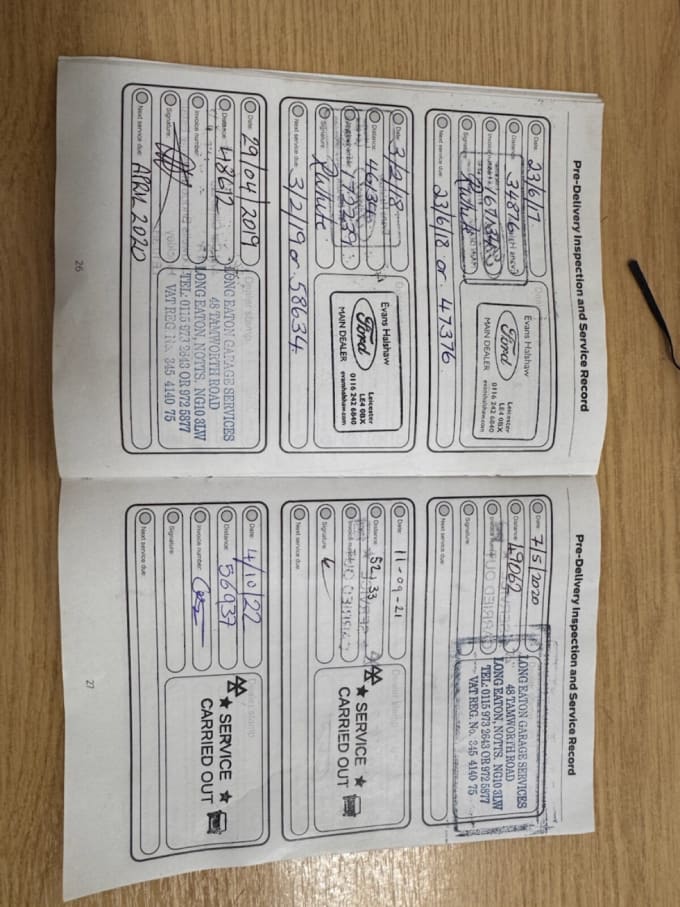 Pre-Delivery Inspection and Service Record
Date: 23/6/17
Distance: 34876
Invoice number:
Signature:
Next service due: 23/6/18 or 47376
Evans Halshaw
Ford
MAIN DEALER
Leicester
LE4 0BX
0116 242 6840
evanshalshaw.com
Date: 3/2/18
Distance: 46134
Invoice number: 172239
Signature:
Next service due: 3/2/19 or 58634
Evans Halshaw
Ford
MAIN DEALER
Leicester
LE4 0BX
0116 242 6840
evanshalshaw.com
Date: 29/04/2019
Distance: 48612
Invoice number:
Signature:
Next service due: APRIL 2020
Dealer stamp
LONG EATON GARAGE SERVICES
48 TAMWORTH ROAD
LONG EATON, NOTTS. NG10 3LW
TEL: 0115 973 2643 OR 972 5877
VAT REG No. 345 4140 75
26
Pre-Delivery Inspection and Service Record
Date: 7/5/2020
Distance: 49062
Signature:
Next service due:
LONG EATON GARAGE SERVICES
48 TAMWORTH ROAD
LONG EATON, NOTTS. NG10 3LW
TEL: 0115 973 2643 OR 972 5877
VAT REG. No. 345 4140 75
Date: 11-09-21
Distance: 52,33
Invoice number:
Signature:
Next service due:
★ SERVICE ★
CARRIED OUT
Date: 4/10/22
Distance: 56937
Invoice number:
Signature:
Next service due:
★ SERVICE ★
CARRIED OUT
27